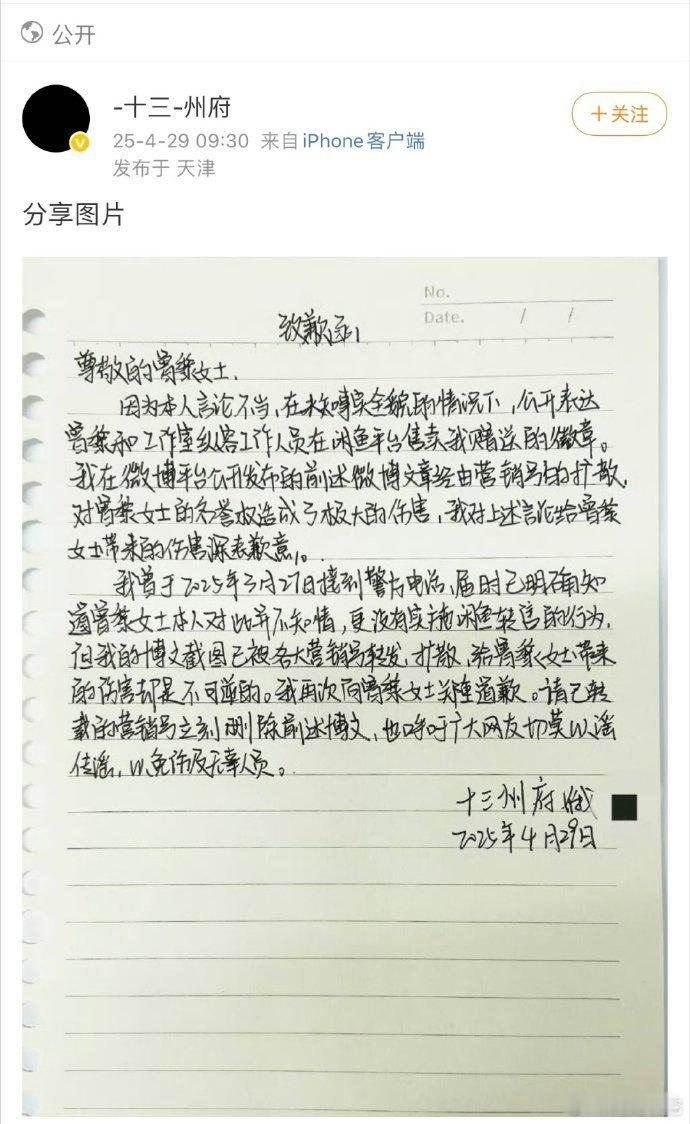 公开
-十三-州府
+关注
25-4-29 09:30 来自 iPhone客户端
发布于 天津
分享图片
No.
Date. / /
致歉函
尊敬的曾黎女士:
因为本人言论不当,在未知事实全貌的情况下,公开表达
曾黎和工作室纵容工作人员在闲鱼平台售卖我赠送的徽章。
我在微博平台公开发布的前述微博文章经由营销号的扩散,
对曾黎女士的名誉权造成了极大的伤害,我对上述言论给曾黎
女士带来的伤害深表歉意。
我曾于2025年3月27日接到警方电话,届时已明确知
道曾黎女士本人对此并不知情,更没有实施闲鱼转售的行为,
但我的博文截图已被各大营销号转发、扩散,给曾黎女士带来
的伤害却是不可逆的。我再次向曾黎女士道歉。请已转
载的营销号立刻删除前述博文,也呼吁广大网友切莫以谣
传谣,以免伤及无辜人员。
十三州府
2025年4月29日